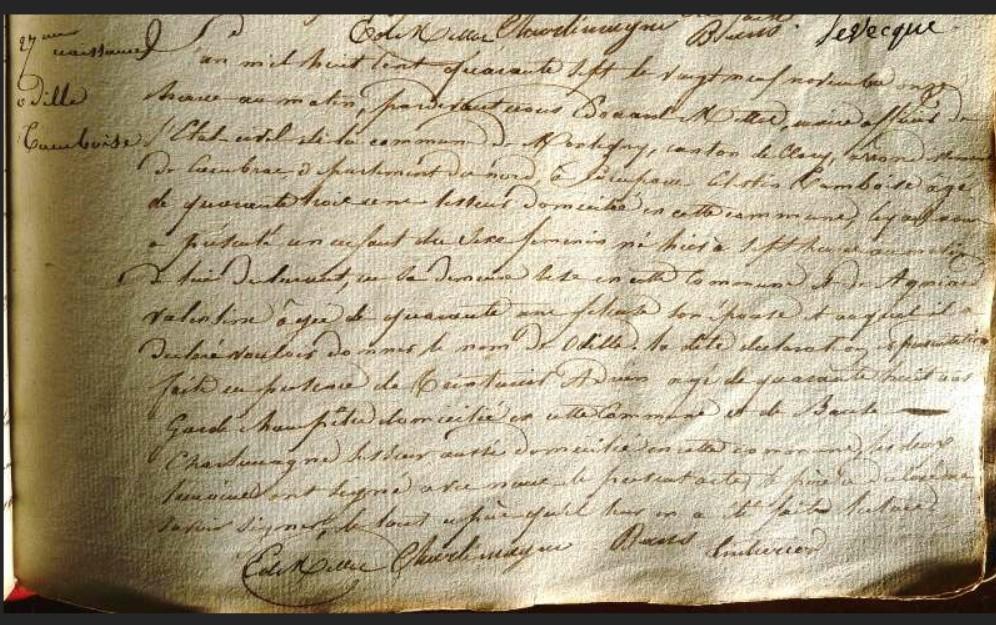 27me naissance
Odille
Tamboise
Ed Millot Charlemagne Basuts Levecque
L'an mil huit cent quarante sept le vingt neuf novembre onze
heure au matin, pardevant nous Edouard Millot, maire officier de
l'Etat civil de la commune de Montigny, canton de Clary, arrondissement
de Cambrai département du nord, est comparu Celestin Tamboise âgé
de quarante trois ans tisseur domicilié en cette commune, lequel nous
a présenté un enfant du sexe féminin né hier à sept heure au matin
de lui déclarant, en sa demeure sise en cette commune et de
Valentine âgée de quarante une fileuse son épouse et auquel il a
déclaré vouloir donner le nom de Odille. la dite declaration et présentation
faite en présence de Adrien agé de quarante huit ans
Garde champêtre domicilié en cette Commune et de
Charlemagne tisseur aussi domicilié en cette commune, les deux
temoins ont signé avec nous le présent acte, le père a déclaré ne
savoir signer, le tout après qu'il leur en a été faite lecture
Ed Millot Charlemagne